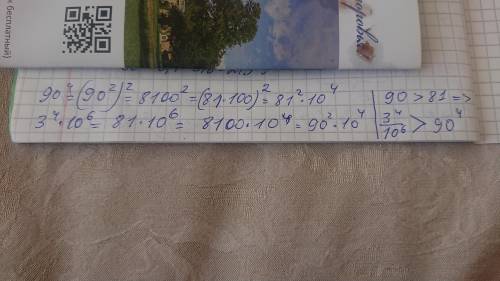 к бесплатный)
90⁴=(90²)²=8100²=(81·100)²=81²·10⁴
3⁴·10⁶=81·10⁶=8100·10⁴=90²·10⁴
90>81=>
3⁴/10⁶>90⁴